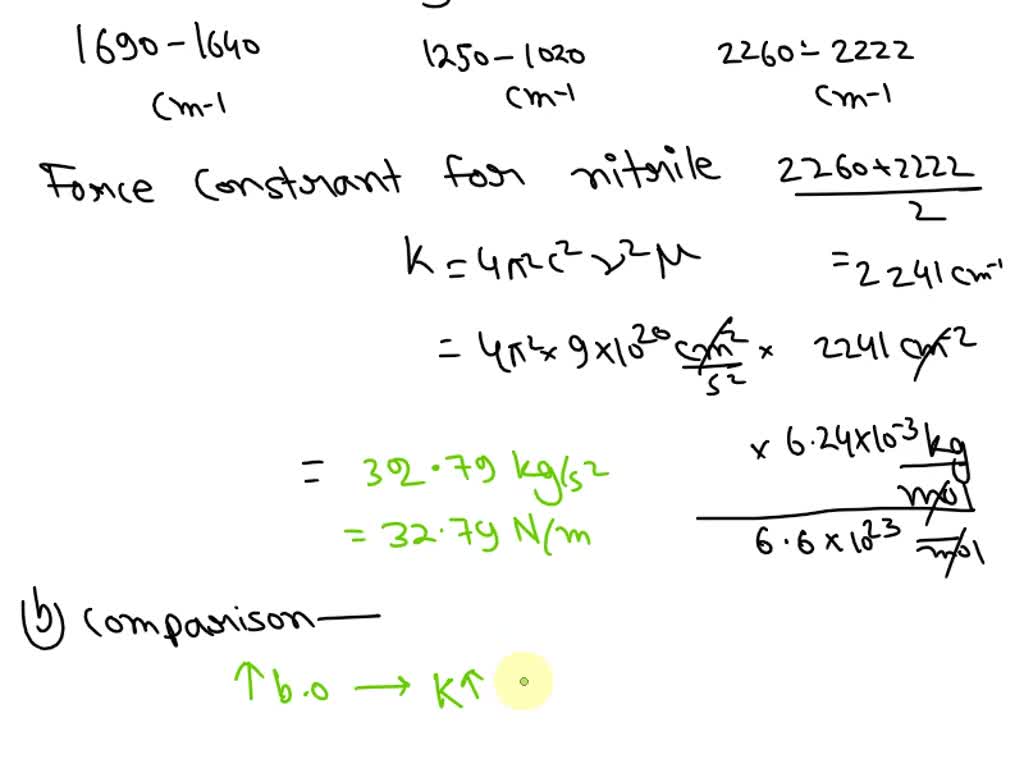 1690-1640 1250-1020 2260-2222
cm-1 cm-1 cm-1
Force constrant for nitrile 2260+2222
2
K = 4π²c²ν²μ = 2241 cm⁻¹
= 4π² × 9×10²⁰ cm²/s² × 2241 cm⁻²
× 6.24×10⁻³ kg/mol
6.6×10²³ /mol
= 32.79 kg/s²
= 32.79 N/m
(b) comparison—
↑ b.o → K↑